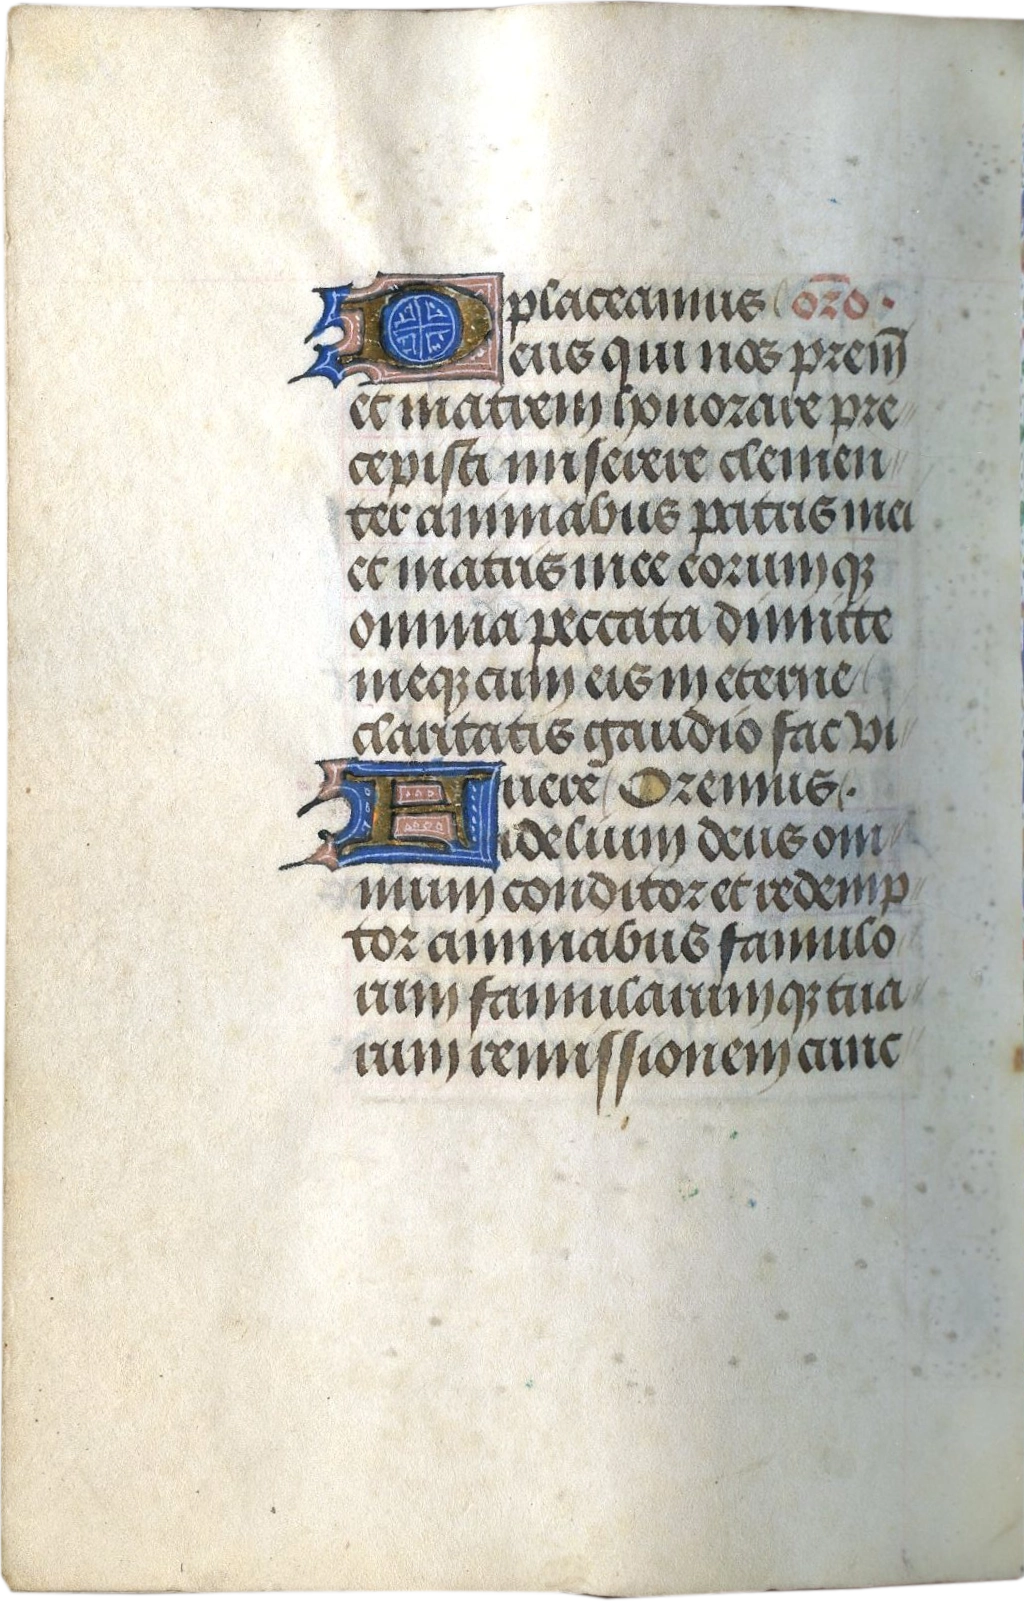 placeamus orõ.
Deus qui nos prem̃
et matrem honorare pre
cepisti miserere clemen
ter animabus patris mei
et matris mee eorumqꝫ
omnia peccata dimitte
meqꝫ cum eis in eterne
claritatis gaudio fac vi
uere Oremus.
Fidelium deus om
nium conditor et redemp
tor animabus famulo
rum famularumqꝫ tua
rum remissionem cunc